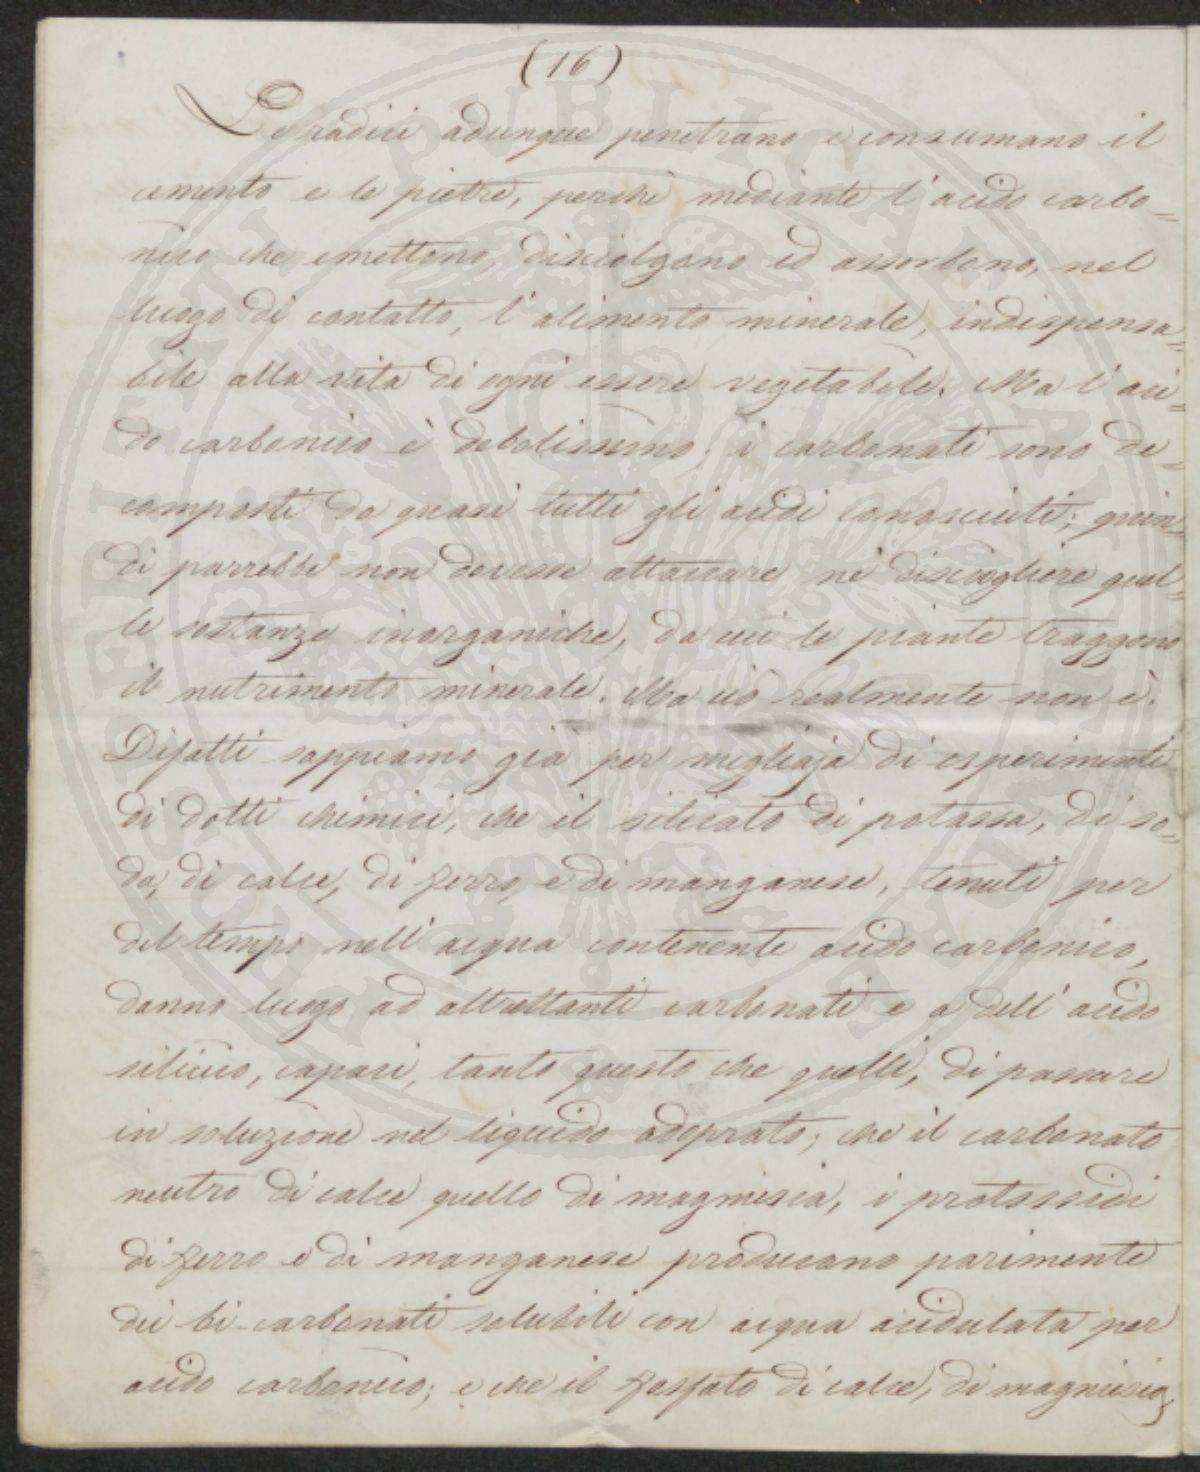 (16)
Le radici adunque penetrano e consumano il
cemento e le pietre, perchè mediante l'acido carbo=
nico che emettono, disciolgono ed assorbono, nel
luogo di contatto, l'alimento minerale, indispensa=
bile alla vita di ogni essere vegetabile. Ma l'aci=
do carbonico è debolissimo; i carbonati sono de=
composti da quasi tutti gli acidi conosciuti; quin=
di parrebbe non dovesse attaccare nè disciogliere quel=
le sostanze inorganiche, da cui le piante traggono
il nutrimento minerale. Ma ciò realmente non è.
Difatti sappiamo già per migliaja di esperimenti
di dotti chimici, che il silicato di potassa, di so=
da, di calce, di ferro, e di manganese, tenuti per
del tempo nell'acqua contenente acido carbonico,
danno luogo ad altrettanti carbonati e a dell'acido
silicico, capaci, tanto questo che quelli, di passare
in soluzione nel liquido adoprato; che il carbonato
neutro di calce quello di magnesia, i protossidi
di ferro e di manganese producano parimente
dei bi-carbonati solubili con acqua acidulata per
acido carbonico; e che il fosfato di calce, di magnesia,